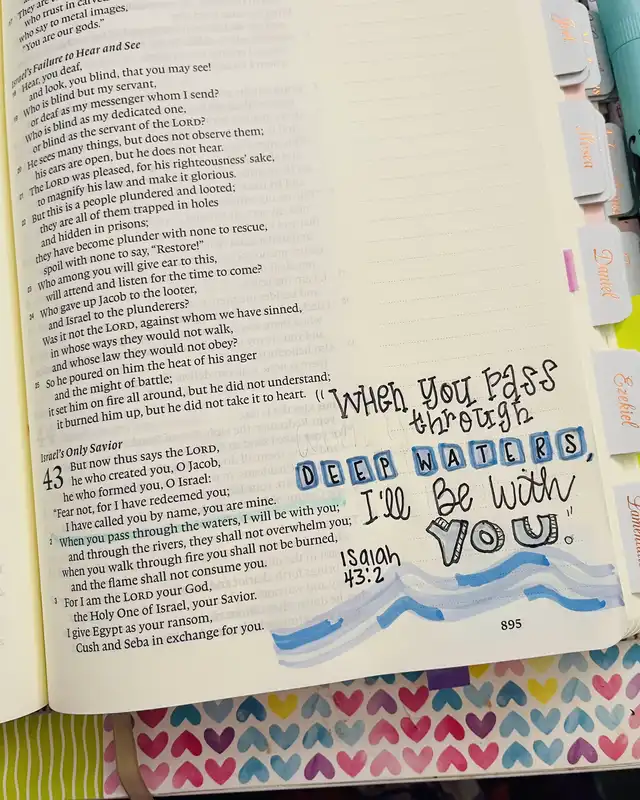 They are
who trust in carved
who say to metal images,
"You are our gods."
Israel's Failure to Hear and See
18 Hear, you deaf,
and look, you blind, that you may see!
19 Who is blind but my servant,
or deaf as my messenger whom I send?
Who is blind as my dedicated one,
or blind as the servant of the LORD?
20 He sees many things, but does not observe them;
his ears are open, but he does not hear.
21 The LORD was pleased, for his righteousness' sake,
to magnify his law and make it glorious.
22 But this is a people plundered and looted;
they are all of them trapped in holes
and hidden in prisons;
they have become plunder with none to rescue,
spoil with none to say, "Restore!"
23 Who among you will give ear to this,
will attend and listen for the time to come?
24 Who gave up Jacob to the looter,
and Israel to the plunderers?
Was it not the LORD, against whom we have sinned,
in whose ways they would not walk,
and whose law they would not obey?
25 So he poured on him the heat of his anger
and the might of battle;
it set him on fire all around, but he did not understand;
it burned him up, but he did not take it to heart.
Israel's Only Savior
43 But now thus says the LORD,
he who created you, O Jacob,
he who formed you, O Israel:
"Fear not, for I have redeemed you;
I have called you by name, you are mine.
2 When you pass through the waters, I will be with you;
and through the rivers, they shall not overwhelm you;
when you walk through fire you shall not be burned,
and the flame shall not consume you.
3 For I am the LORD your God,
the Holy One of Israel, your Savior.
I give Egypt as your ransom,
Cush and Seba in exchange for you.
"When you pass
through
DEEP WATERS,
I'll Be with
YOU."
Isaiah
43:2
895
Joel
Hosea
Daniel
Ezekiel